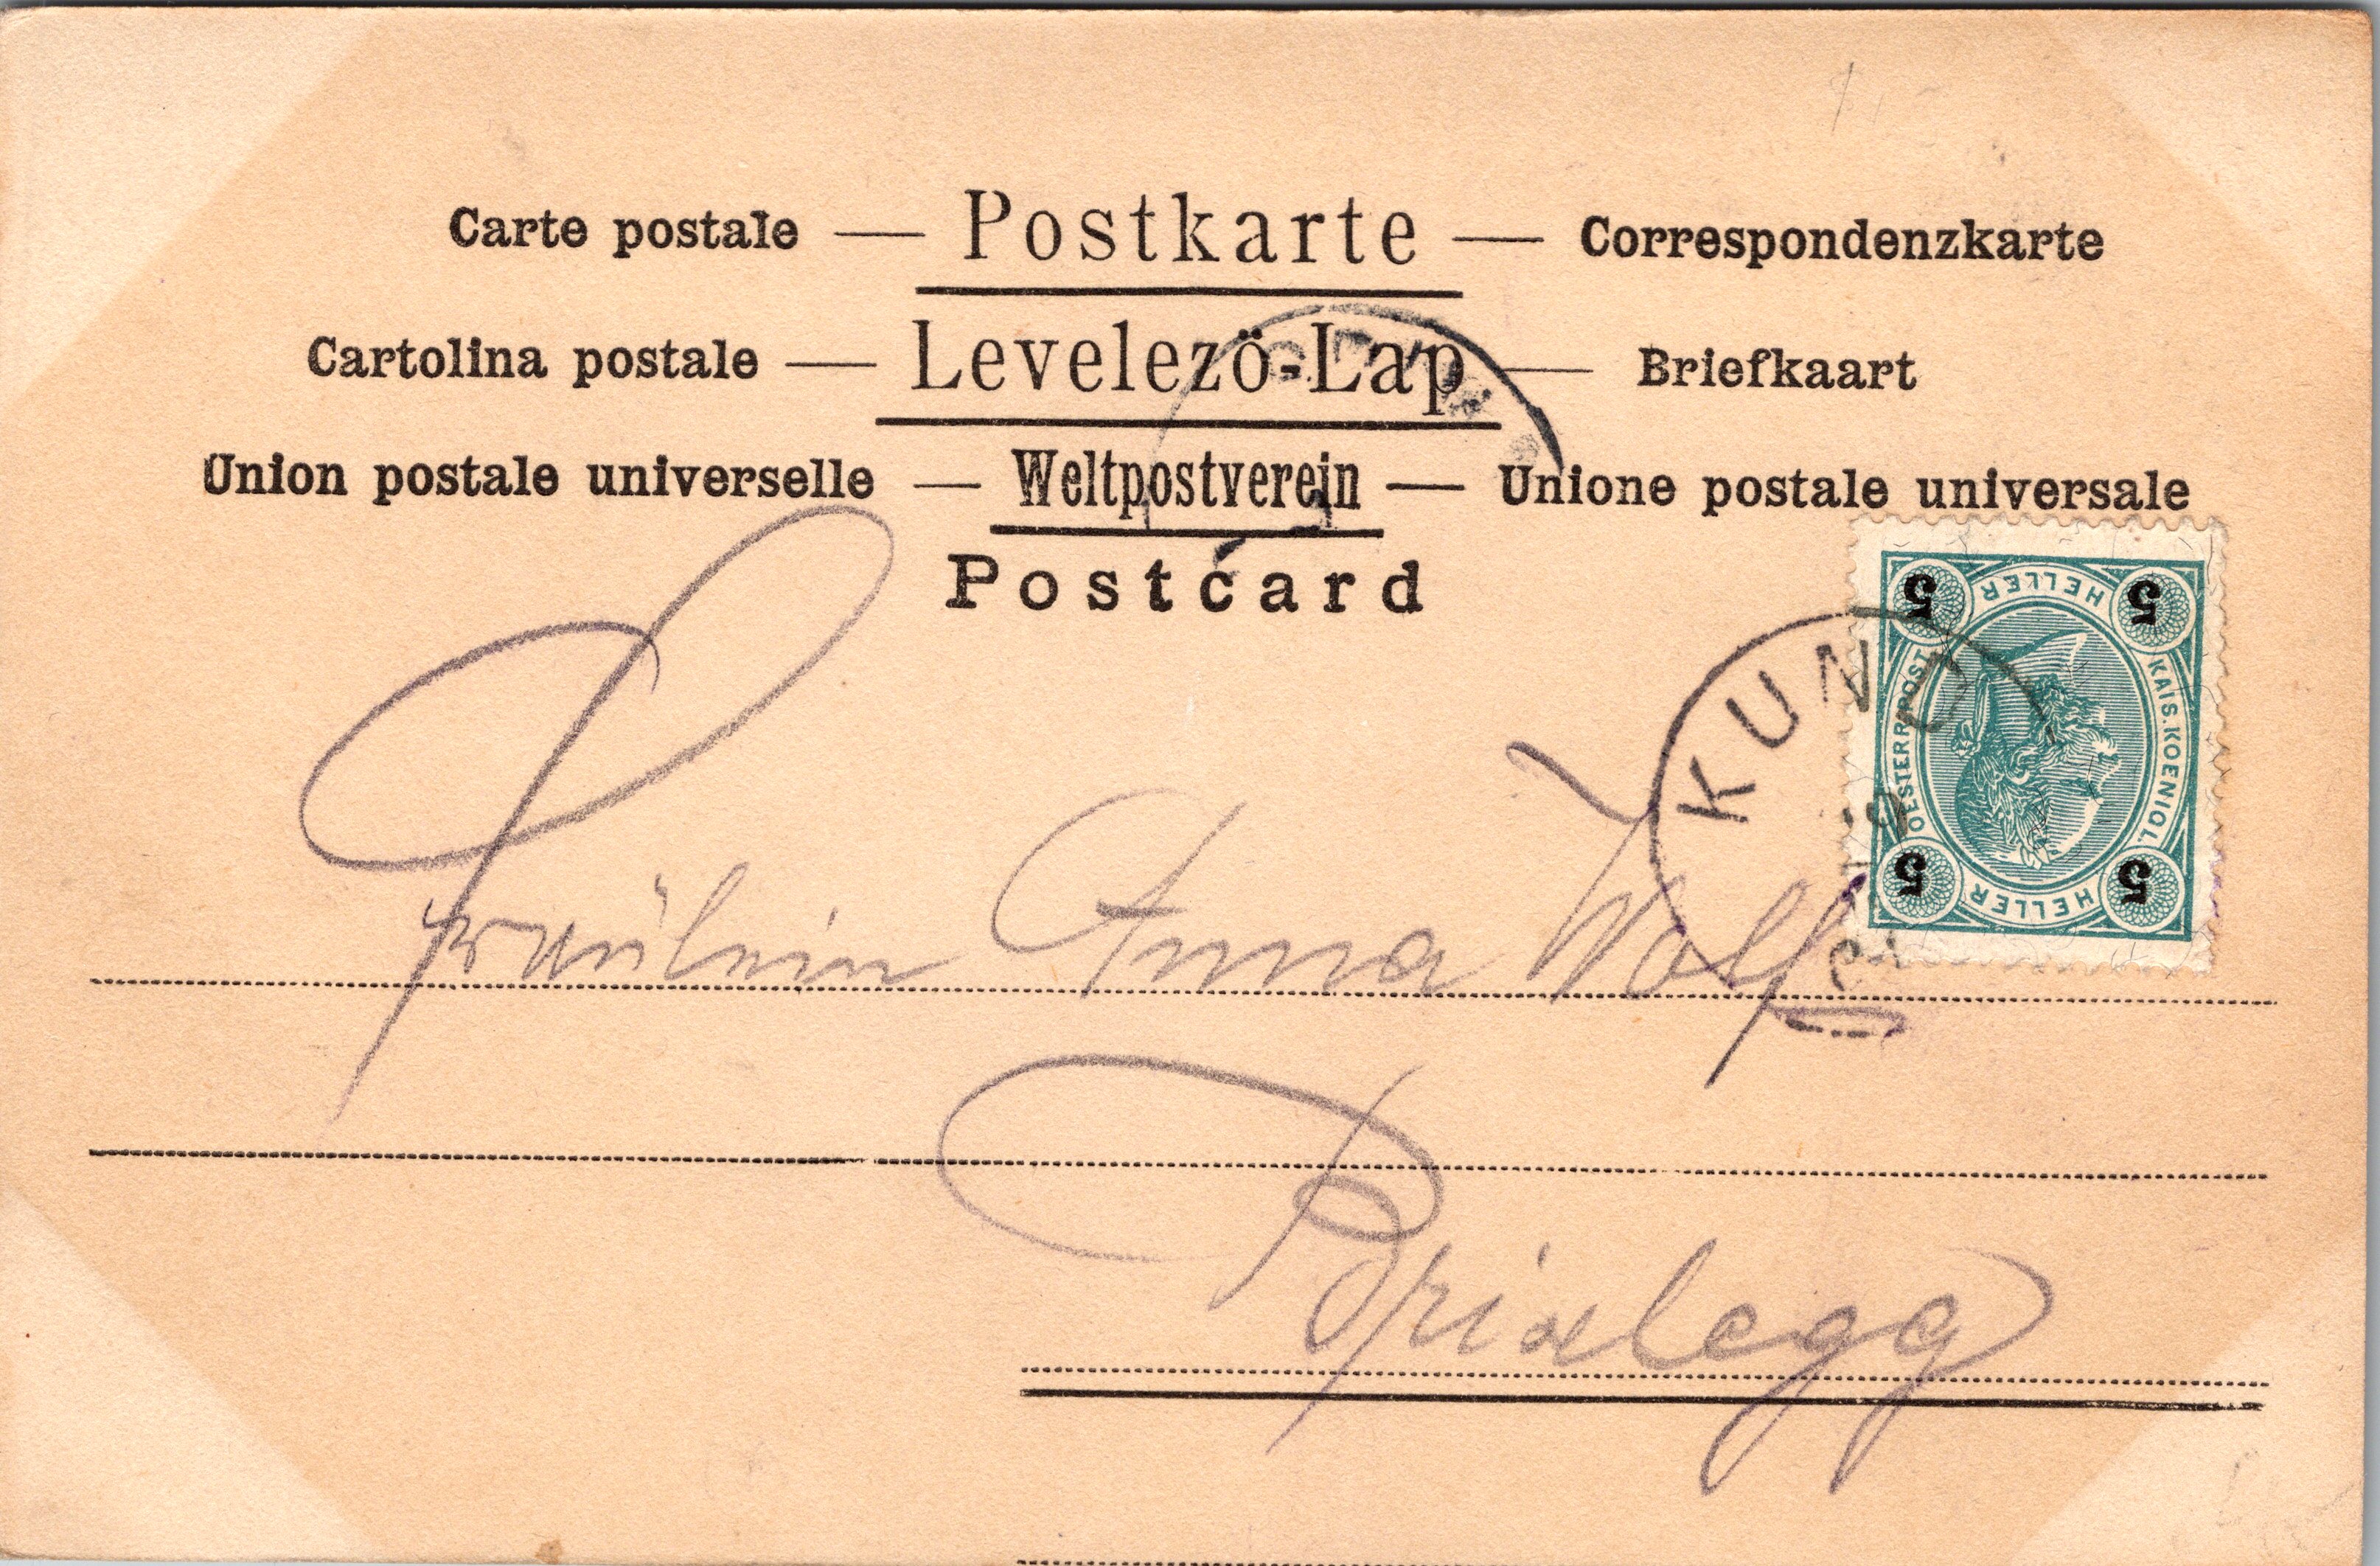 Carte postale — Postkarte — Correspondenzkarte
Cartolina postale — Levelezö-Lap. — Briefkaart
Union postale universelle — Weltpostverein — Unione postale universale
Postcard
5 HELLER 5
KAIS. KOENIGL.
OESTERR. POST
5 HELLER 5
KUND
Fräulein Anna Wolf
Brixlegg